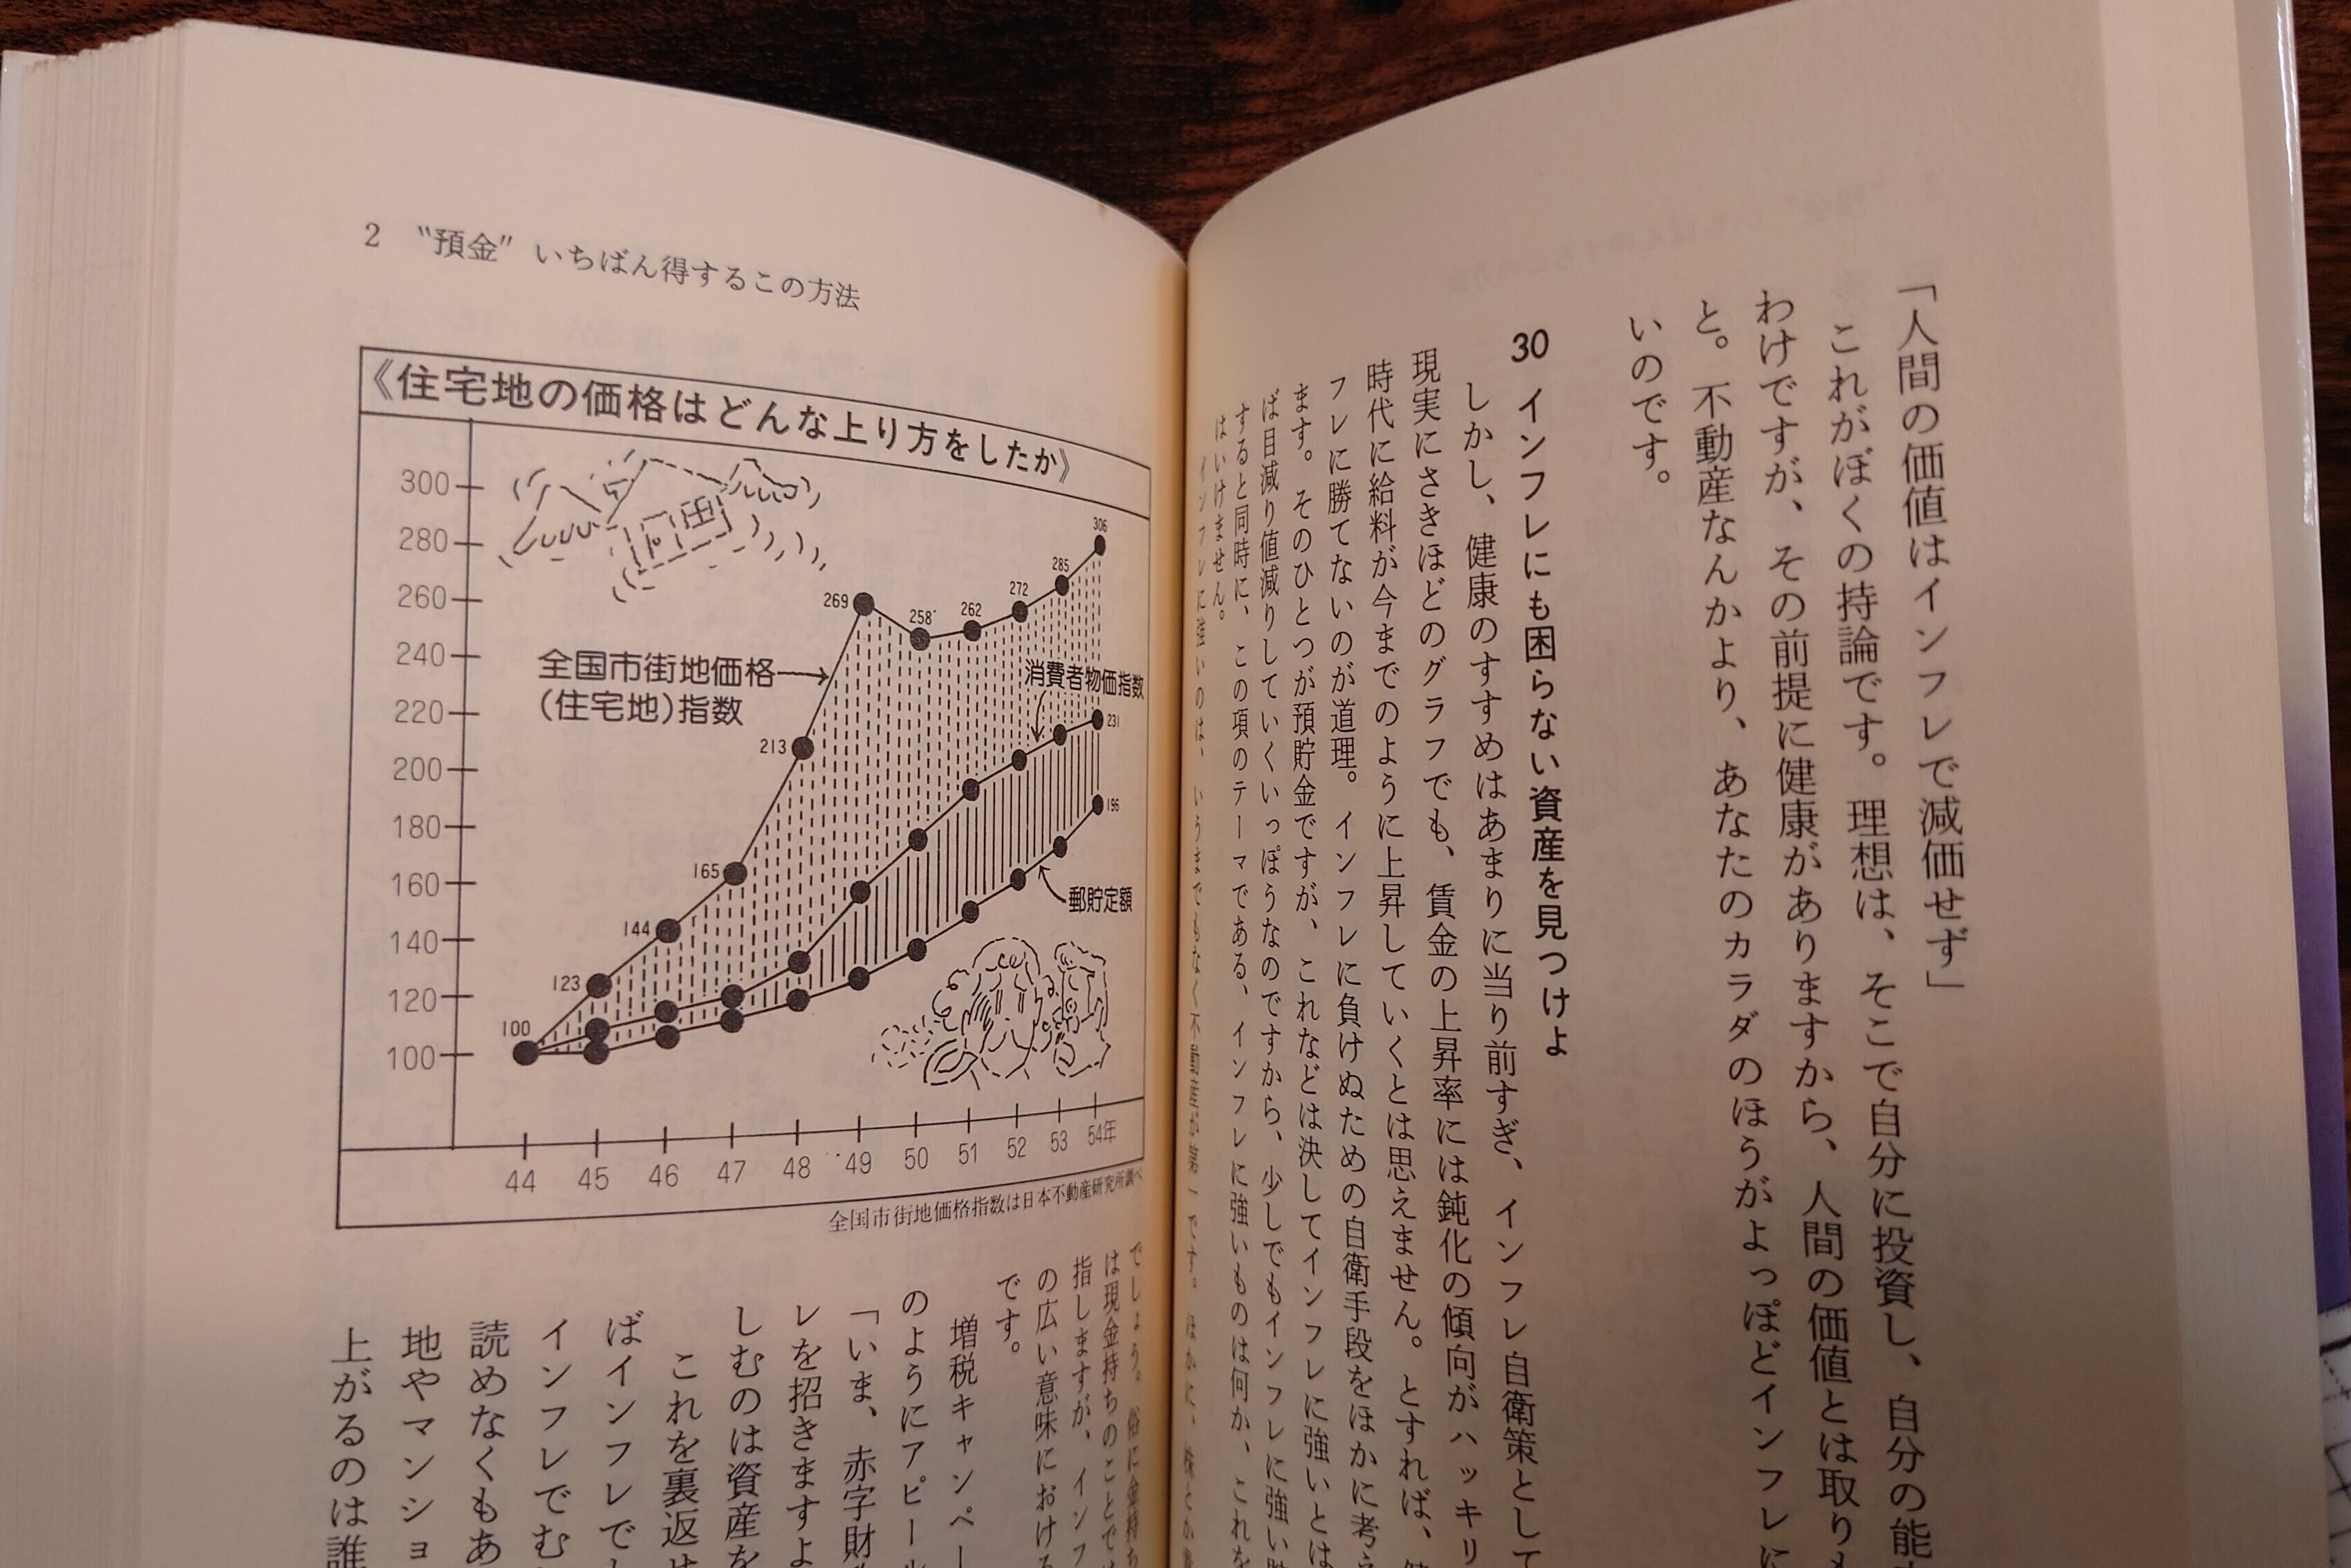 「人間の価値はインフレで減価せず」
これがぼくの持論です。理想は、そこで自分に投資し、自分の能
わけですが、その前提に健康がありますから、人間の価値とは取りも
と。不動産なんかより、あなたのカラダのほうがよっぽどインフレに
いのです。
30 インフレにも困らない資産を見つけよ
しかし、健康のすすめはあまりに当り前すぎ、インフレ自衛策として
現実にさきほどのグラフでも、賃金の上昇率には鈍化の傾向がハッキリ
時代に給料が今までのように上昇していくとは思えません。とすれば、
フレに勝てないのが道理。インフレに負けぬための自衛手段をほかに考え
ます。そのひとつが預貯金ですが、これなどは決してインフレに強いとは
ば目減り値減りしていくいっぽうなのですから、少しでもインフレに強い
すると同時に、この項のテーマである、インフレに強いものは何か、これを
はいけません。
インフレに強いのは、いうまでもなく不動産が第一です。ほかに、株とか
2 “預金” いちばん得するこの方法
《住宅地の価格はどんな上り方をしたか》
300
280
260
240
220
200
180
160
140
120
100
全国市街地価格
(住宅地)指数
消費者物価指数
郵貯定額
100
123
144
165
213
269
258
262
272
285
306
231
196
44 45 46 47 48 49 50 51 52 53 54年
全国市街地価格指数は日本不動産研究所調べ
でしょう。俗に金持ち
は現金持ちのことで
指しますが、インフ
の広い意味における
です。
増税キャンペー
のようにアピール
「いま、赤字財
レを招きますよ
しむのは資産を
これを裏返せ
ばインフレで
インフレでむ
読めなくもあ
地やマンショ
上がるのは誰